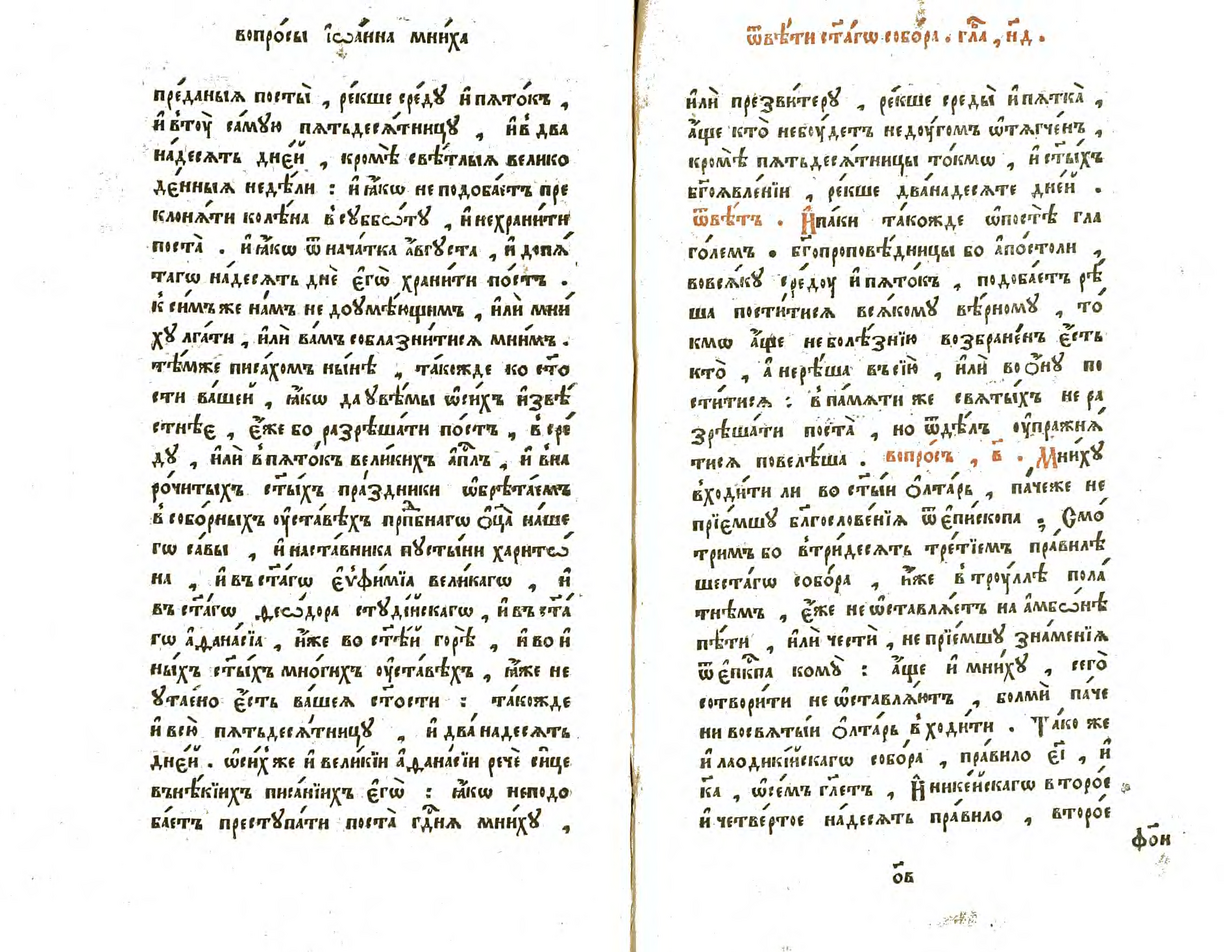 вопро́сы і҆ѡа́нна мни́ха
пре́даныѧ посты̀ , ре́кше сре́ду и҆ пѧто́къ ,
и҆ в̾тоу̀ са́мую пѧтьдесѧ́тницу , и҆ в̾ два
на́десѧть дне́й , кромѣ̀ свѣ́тлыѧ велико
де́нныѧ недѣ́ли : и҆ ꙗ҆́кѡ не подоба́етъ пре
клонѧ́ти колѣ́на в̾ суббѡ́ту , и҆ нехрани́ти
поста̀ . и҆ ꙗ҆́кѡ ѿ нача́тка а҆́вгуста , и҆ допѧ́
тагѡ на́десѧть днѐ є҆гѡ̀ храни́ти по́стъ .
к̾ си́мъ же на́мъ не доумѣ́ющимъ , и҆лѝ мни́
ху лга́ти , и҆лѝ ва́мъ соблазни́тисѧ мни́мъ .
тѣ́мже писа́хомъ ны́нѣ , та́кожде ко ст҃о
сти ва́шей , ꙗ҆́кѡ да увѣ́мы ѡ҆си́хъ и҆звѣ́
стнѣє , є҆́же бо разрѣша́ти по́стъ , в̾ сре́
ду , и҆лѝ в̾пѧто́къ вели́кихъ а҆п҃лъ , и҆ в̾на
рочи́тыхъ ст҃ы́хъ пра́здники ѡ҆брѣта́емъ
в̾ собо́рныхъ оу҆ста́вѣхъ прпⷣбнагѡ ѻ҆ц҃а̀ на́ше
гѡ са́вы , и҆ наста́вника пусты́ни харитѡ́
на , и҆ въ ст҃а́гѡ є҆ѵфи́мїа вели́кагѡ , и҆
въ ст҃а́гѡ ѳео́дора студі́йскагѡ , и҆ въ ст҃а́
гѡ а҆ѳана́сїа , и҆́же во ст҃ѣ́й горѣ̀ , и҆ во и҆
ны́хъ ст҃ы́хъ мно́гихъ оу҆ста́вѣхъ , ꙗ҆́же не
утае́но є҆́сть ва́шеѧ ст҃ости : та́кожде
и҆ всю̀ пѧтьдесѧ́тницу , и҆ два́ надесѧть
дне́й . ѡ҆си́хже и҆ вели́кїи а҆ѳана́сїи речѐ си́це
въ нѣ́кїихъ писа́нїихъ є҆гѡ̀ : ꙗ҆́кѡ неподо
ба́етъ преступа́ти поста̀ гдⷭ҇нѧ мни́ху ,
ѿвѣ́ти ст҃а́гѡ собо́ра . гл҃а , н҃д .
и҆лѝ презви́теру , ре́кше среды̀ и҆ пѧтка̀ ,
а҆́ще кто̀ небу́детъ неду́гомъ ѡ҆тѧгче́нъ ,
кромѣ̀ пѧтьдесѧ́тницы то́кмѡ , и҆ ст҃ы́хъ
бг҃оѧвле́нїи , ре́кше два́надесѧте дне́й .
ѿвѣ́тъ . И҆па́ки та́кожде ѡ҆постѣ̀ гла
го́лемъ . бг҃опроповѣ́дницы бо а҆по́столи ,
вовсѧ́ку сре́доу и҆ пѧто́къ , подоба́етъ рѣ́
ша пости́тисѧ всѧ́кому вѣ́рному , то́
кмѡ а҆́ще не болѣ́знїю возбране́нъ є҆́сть
кто̀ , а҆ нерѣ́ша въ сїю̀ , и҆лѝ во ѻ҆́ну по
сти́тисѧ : в̾ па́мѧти же свѧты́хъ не ра
зрѣша́ти поста̀ , но ѿдѣ́лъ оу҆пражнѧ́
тисѧ повелѣ́ша . вопро́съ , в҃ . Мни́ху
в̾ходи́ти ли во ст҃ы́и ѻ҆лта́рь , па́чеже не
прїе́мшу благослове́нїѧ ѿ є҆пи́скопа ; Смо́
тримъ бо в̾три́десѧть тре́тїемъ пра́вилѣ
шеста́гѡ собо́ра , и҆́же в̾ троу́ллѣ пола́
тнѣмъ , є҆́же не ѡ҆ставлѧ́етъ на а҆мбѡ́нѣ
пѣ́ти , и҆лѝ честѝ , не прїе́мшу зна́менїѧ
ѿ є҆пⷭ҇кпа кому̀ : а҆́ще и҆ мни́ху , сего̀
сотвори́ти не ѡ҆ставлѧ́ютъ , болмѝ па́че
ни восвѧты́и ѻ҆лта́рь в̾ходи́ти . Та́ко же
и҆ лаодикі́йскагѡ собо́ра , пра́вило є҃і , и҆
к҃а , ѡ҆се́мъ гл҃етъ , И҆ нике́йскагѡ второ́е
и҆ четве́ртое на́десѧть пра́вило , второ́е
ф҃он
о҃в